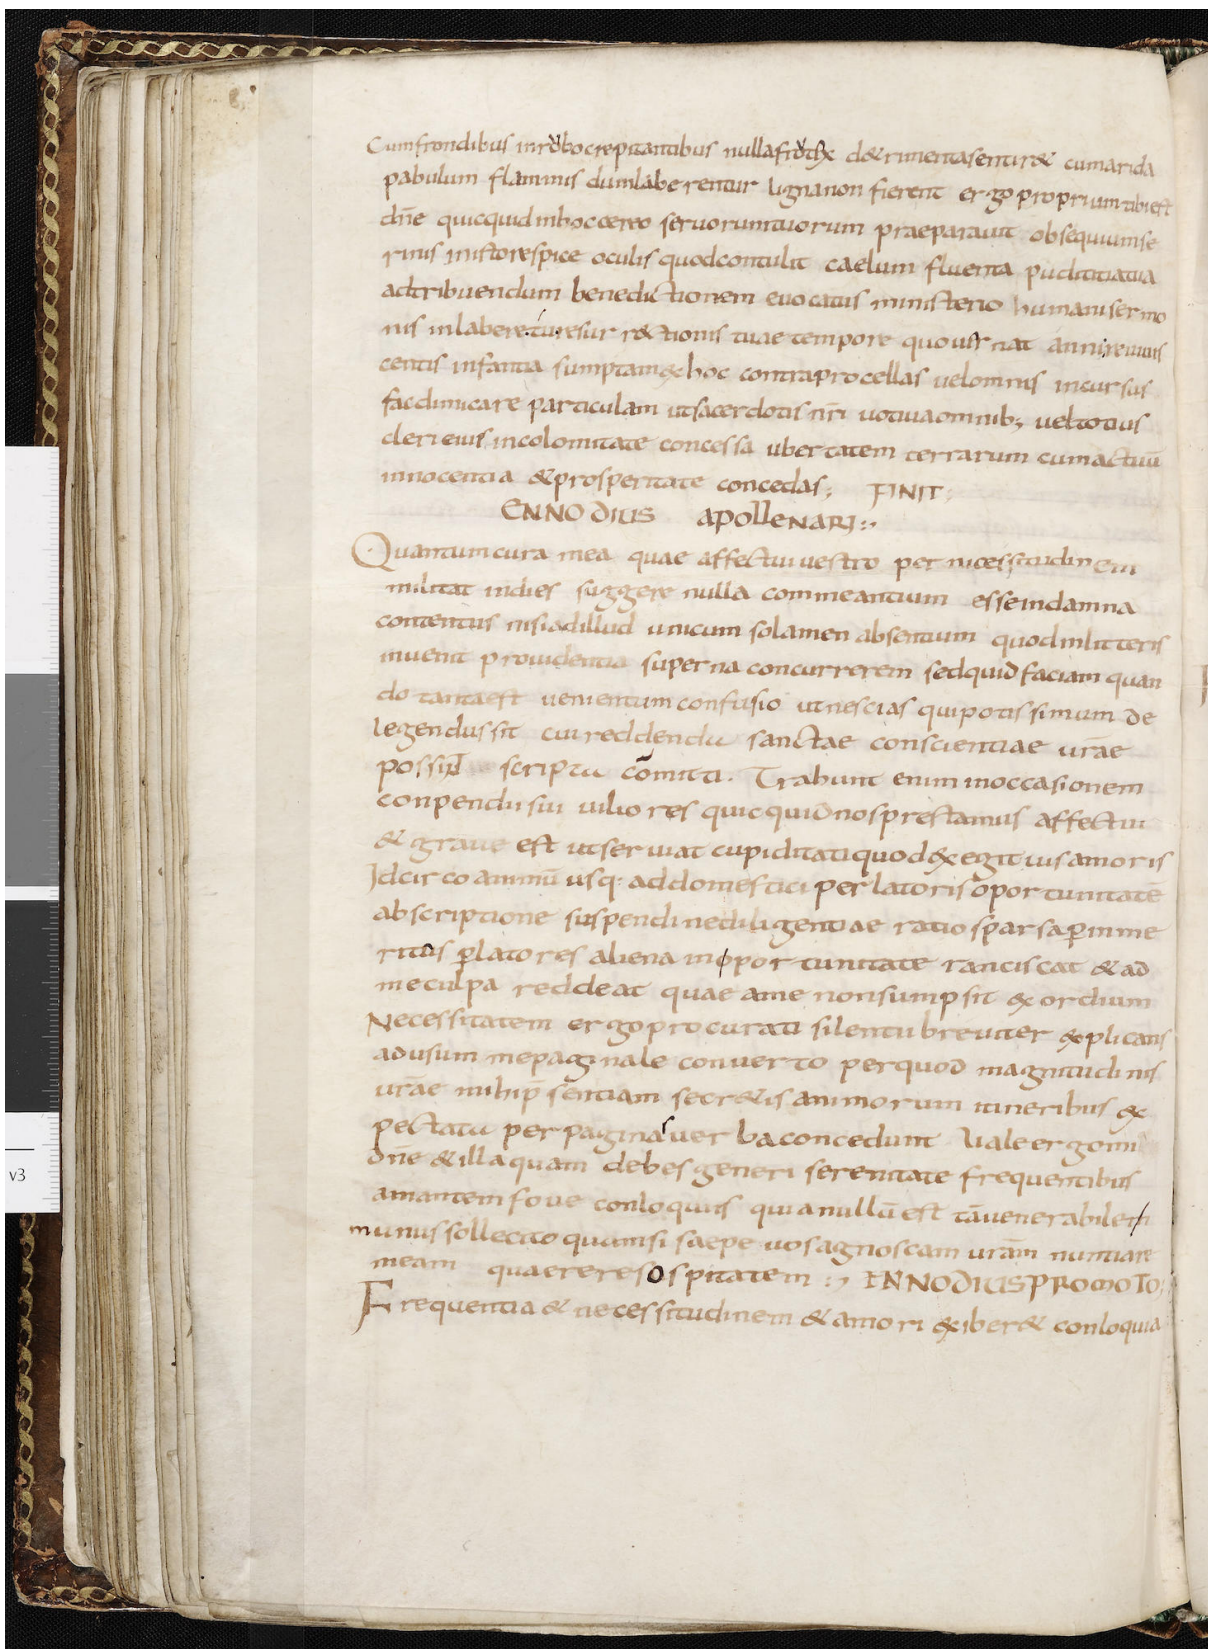 Cumfrondibus inrobo crepitantibus nulla frutex d&rimentasentir& cumarida
pabulum flammis dumlaberentur lignanon fierent ergo propriumtibiest
dn̄e quicquid inhoccereo seruorumtuorum praeparauit obsequiumse
renis inistorespice oculis quodcontulit caelum fluenta pudicitiatua
adtribuendum benedictionem euocatus ministerio humanisermo
nis inlaberetur resurr&tionis tuae tempore quouernat annirenuis
centis infantia sumptamex hoc contraprocellas uelomnis incursus
facdimicare particulam utsacerdotis nr̄i uotiuaomnib; ueltotius
cleri eius incolomitate concessa ubertatem terrarum cumactuū
innocentia &prosperitate concedas; FINIT;
ENNODIUS APOLLENARI:,
Quantumcura mea quae affectuiuestro per nicessitudinem
militat indies suggere nulla commeantium esseindamna
contentus nisiadillud unicum solamen absentium quodinlitteris
inuenit prouidentia superna concurrerem sedquid faciam quan
do tantaest uenientum confusio utnescias quipotissimum de
legendussit cui reddendu sanctae conscientiae ur̄ae
possi scriptu cōmitti. Trahunt enim inoccasionem
conpendiisui uiliores quicquidnosprestamus affectui
& graue est utseruiat cupiditatiquodexegit iusamoris
Idcirco animū usq· addomestici perlatorisoportunitatē
abscriptione suspendi nediligentiae ratio sparsaꝑinme
ritus ꝑlatores aliena inoportunitate ranciscat & ad
meculpa reddeat quae ame nonsumpsit exordium
Necessitatem ergo procurati silentii breuiter explicatis
adusum mepaginale conuerto perquod magnitudinis
ur̄ae mihip̄sentiam secr&is animorum itineribus ex
pectatu per pagina uerba concedunt Uale ergo mi
dn̄e &illaquam debes generi serenitate frequentibus
amantemfoue conloquiis quia nullū est tāuenerabilem
munus sollecito quamsi saepe uosagnoscam ur̄am nuntiare
meam quaerere sospitatem :, ENNODIUS PROMOTO;
Frequentia & necessitudinem & amori exiber& conloquia